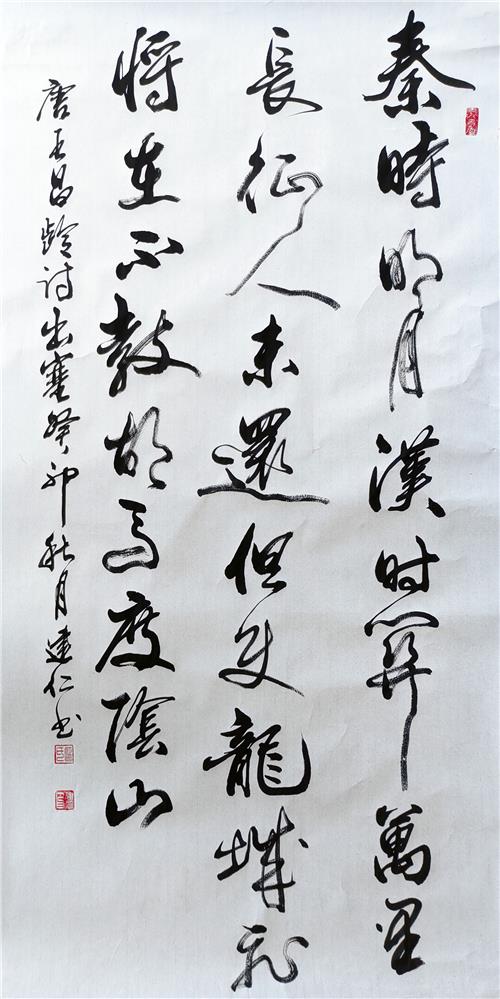 秦時明月漢时関萬里
長征人未還但使龍城飛
将在不教胡马度陰山
唐王昌龄诗出塞癸卯秋月建仁书